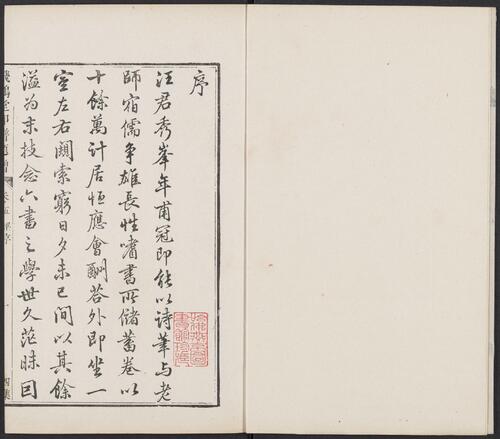 序
汪君秀峯年甫冠即能以詩筆與老
師宿儒爭雄長性嗜書所儲蓄卷以
十餘萬計居恆應會酬荅外即坐一
室左右闚索窮日夕未已間以其餘
溢为末技念六書之學世久茫昧因